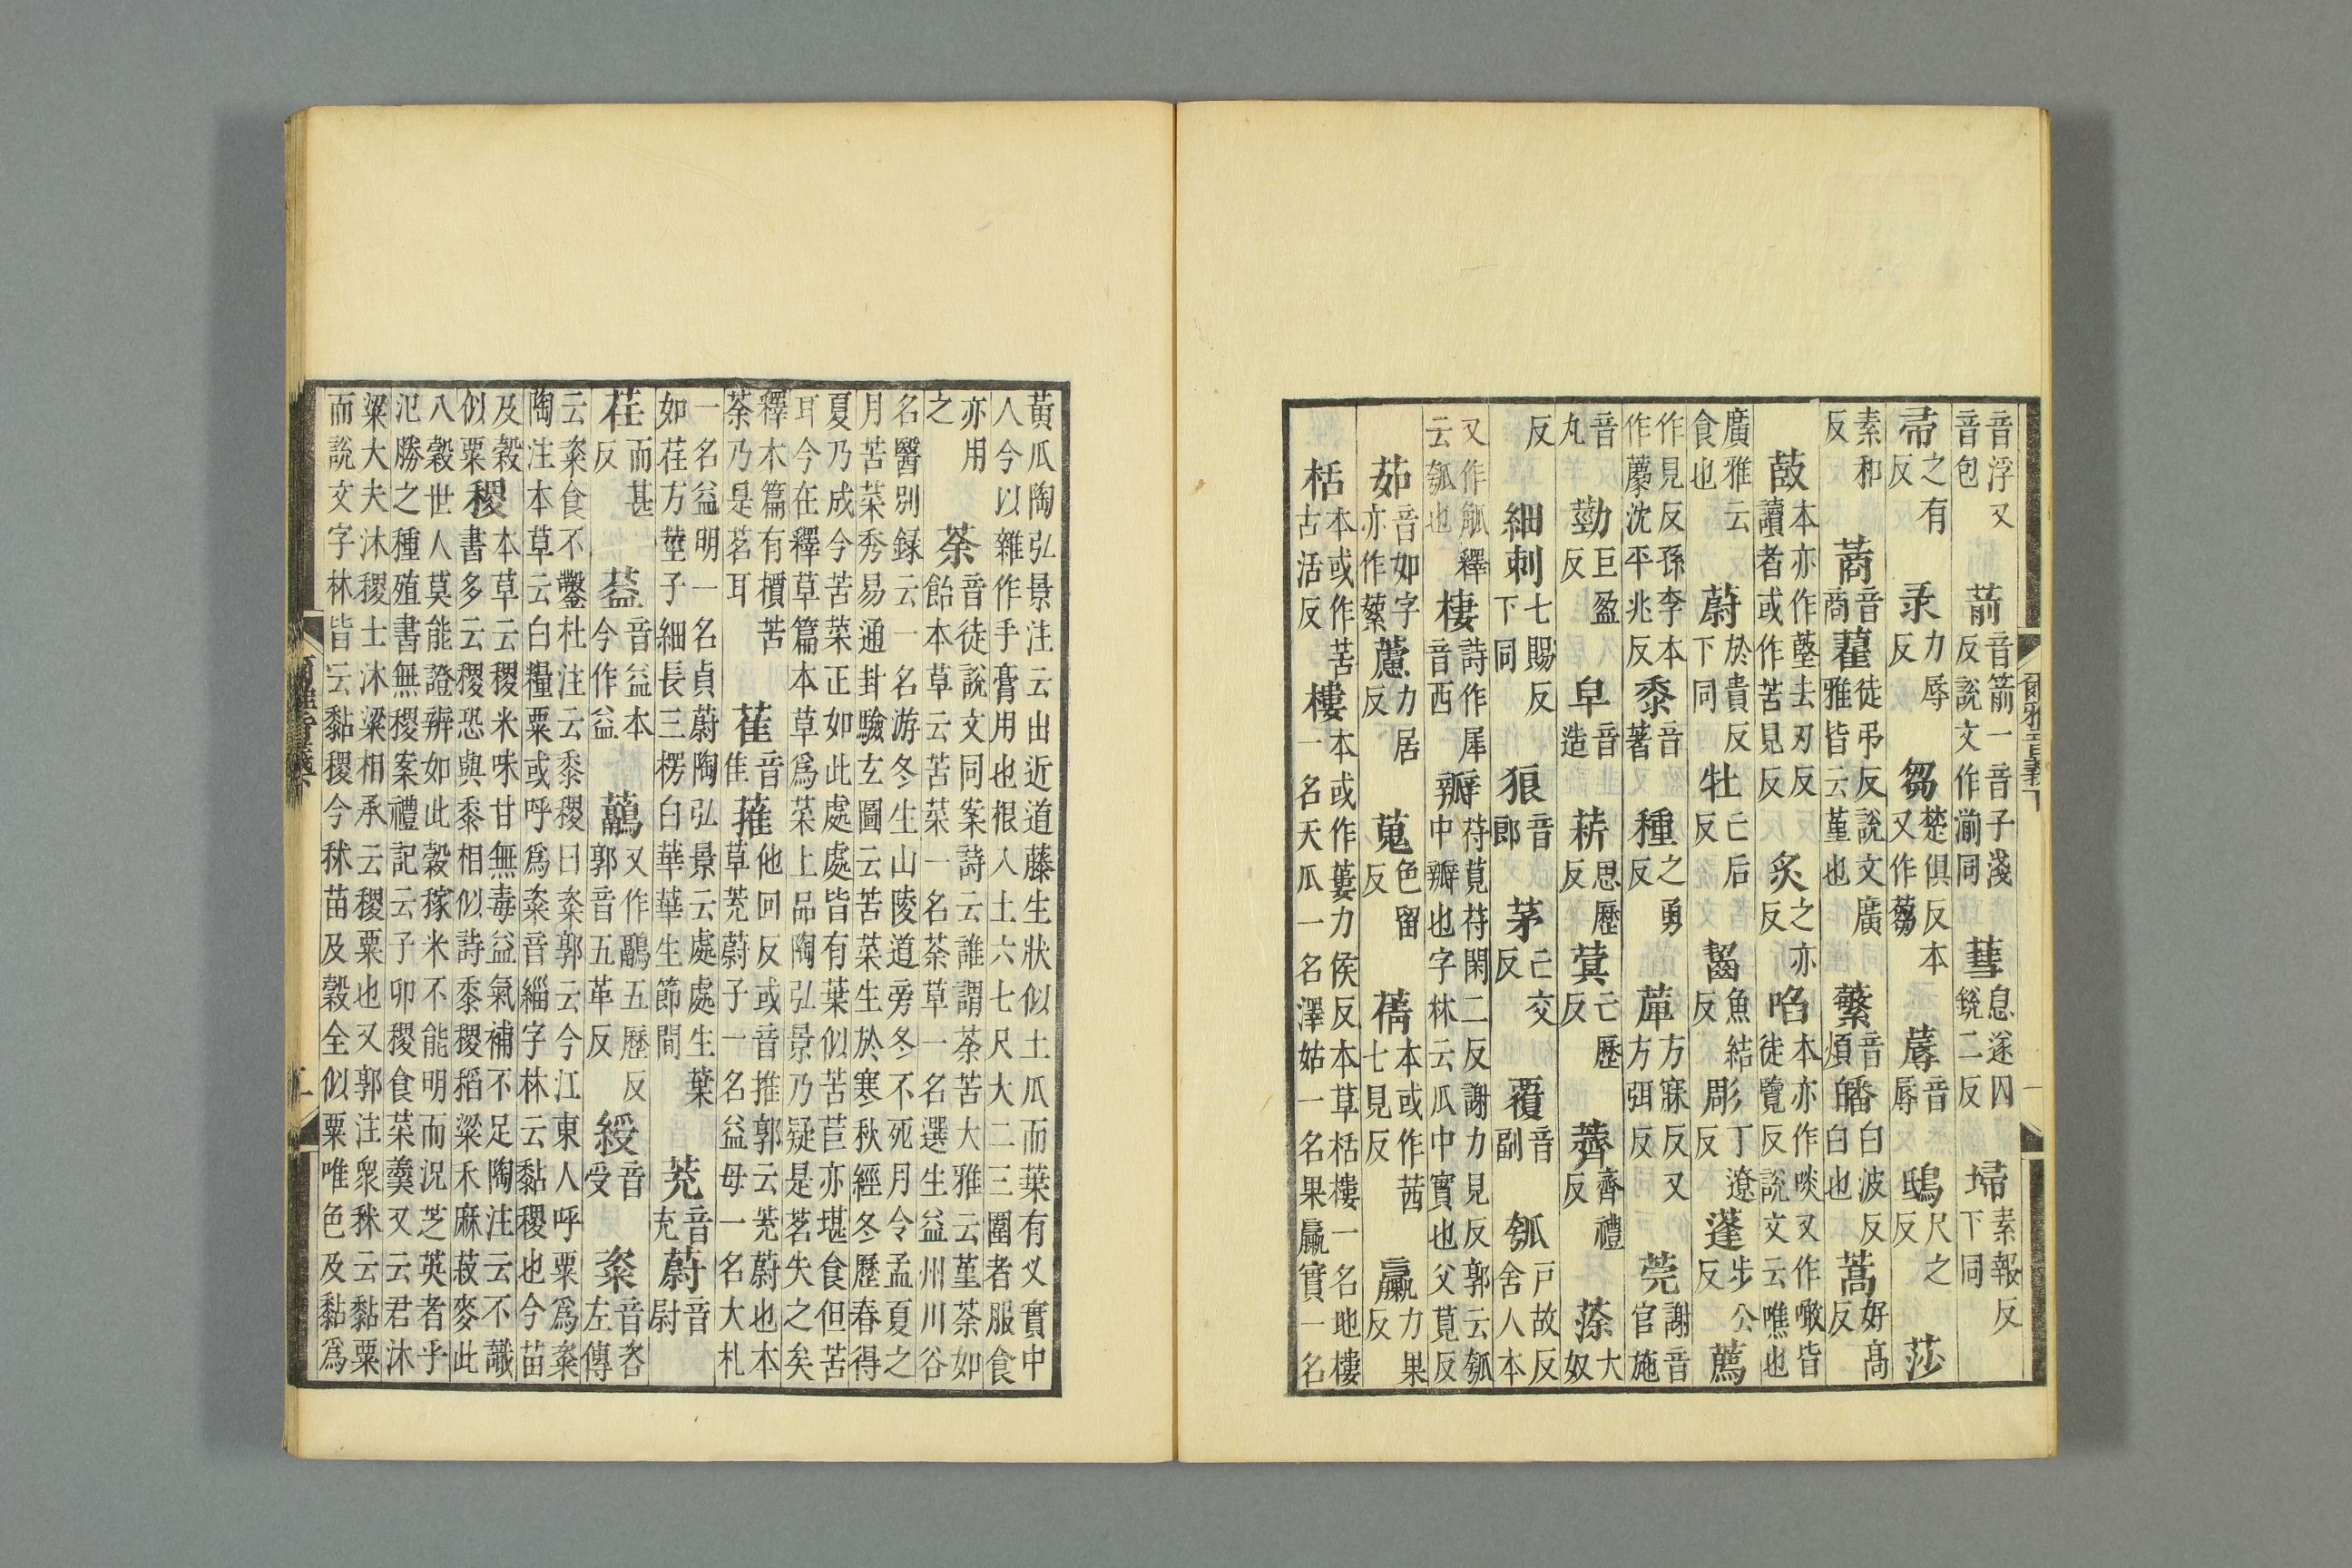 爾雅音義下
音浮又音包 葥音箭一音子淺反說文作湔同 彗息遂囚銳二反 埽素報反下同
帚之有反 录力辱反 芻楚俱反本又作蒭 蓐音辱 鴟尺之反 莎
素和反 蔏音商 藋徒弔反說文廣雅皆云堇也 蘩音煩 皤白波反白也 蒿好髙反
菣本亦作藖去刃反讀者或作苦見反 炙之亦反 啗本亦作啖又作噉皆徒覽反說文云噍也
廣雅云食也 蔚於貴反下同 牡亡后反 齧魚結反 彫丁遼反 蓬步公反 薦
作見反孫李本作藨沈平兆反 黍音著 種之勇反 萆方寐反又方弭反 莞謝音官施
音丸 葝巨盈反 皁音造 菥思歷反 蓂亡歷反 薺齊禮反 蒤大奴
反 細刺七賜反下同 狼音郎 茅亡交反 覆音副 瓠戸故反舍人本
又作觚釋云瓠也 棲詩作犀音西 瓣苻莧苻閑二反謝力見反郭云瓠中瓣也字林云瓜中實也父莧反
茹音如字亦作蕠 藘力居反 蒐色留反 蒨本或作茜七見反 蠃力果反
栝本或作苦古活反 樓本或作蔞力侯反本草栝樓一名地樓一名天瓜一名澤姑一名果臝實一名
黃瓜陶弘景注云出近道藤生狀似土瓜而葉有乂實中人今以雜作手膏用也根入土六七尺大二三圍者服食
亦用之 荼音徒說文同案詩云誰謂荼苦大雅云堇荼如飴本草云苦菜一名荼草一名選生益州川谷
名醫別録云一名游冬生山陵道旁冬不死月令孟夏之月苦菜秀易通卦驗玄圖云苦菜生於寒秋經冬歷春得
夏乃成今苦菜正如此處處皆有葉似苦苣亦堪食但苦耳今在釋草篇本草爲菜上品陶弘景乃疑是茗失之矣
釋木篇有檟苦荼乃是茗耳 萑音隹 蓷他回反或音推郭云茺蔚也本草茺蔚子一名益母一名大札
一名益明一名貞蔚陶弘景云處處生葉如荏方莖子細長三楞白華華生節間 茺音充 蔚音尉
荏而甚反 音益本今作益 虉又作鷊五歷反郭音五革反 綬音受 粢音咨左傳
云粢食不鑿杜注云黍稷曰粢郭云今江東人呼粟爲粢陶注本草云白糧粟或呼爲粢音緇字林云黏稷也今苗
及穀似粟 稷本草云稷米味甘無毒益氣補不足陶注云不識書多云稷恐與黍相似詩黍稷稻粱禾麻菽麥此
八穀世人莫能證辨如此穀稼米不能明而況芝英者乎氾勝之種殖書無稷案禮記云子卯稷食菜羹又云君沐
粱大夫沐稷士沐粱相承云稷粟也又郭注衆秫云黏粟而說文字林皆云黏稷今秫苗及穀全似粟唯色及黏爲
爾雅音義下